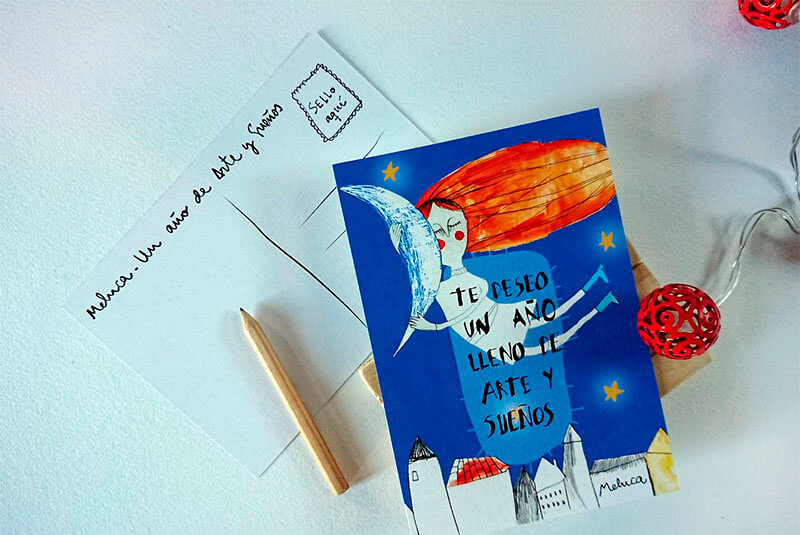 SELLO
aquí
Meluca - Un año de Arte y Sueños
TE DESEO
UN AÑO
LLENO DE
ARTE Y
SUEÑOS
Meluca